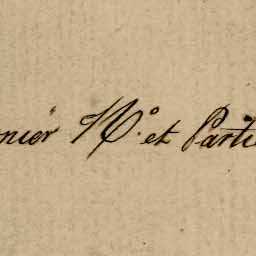 nier N.º et Parti